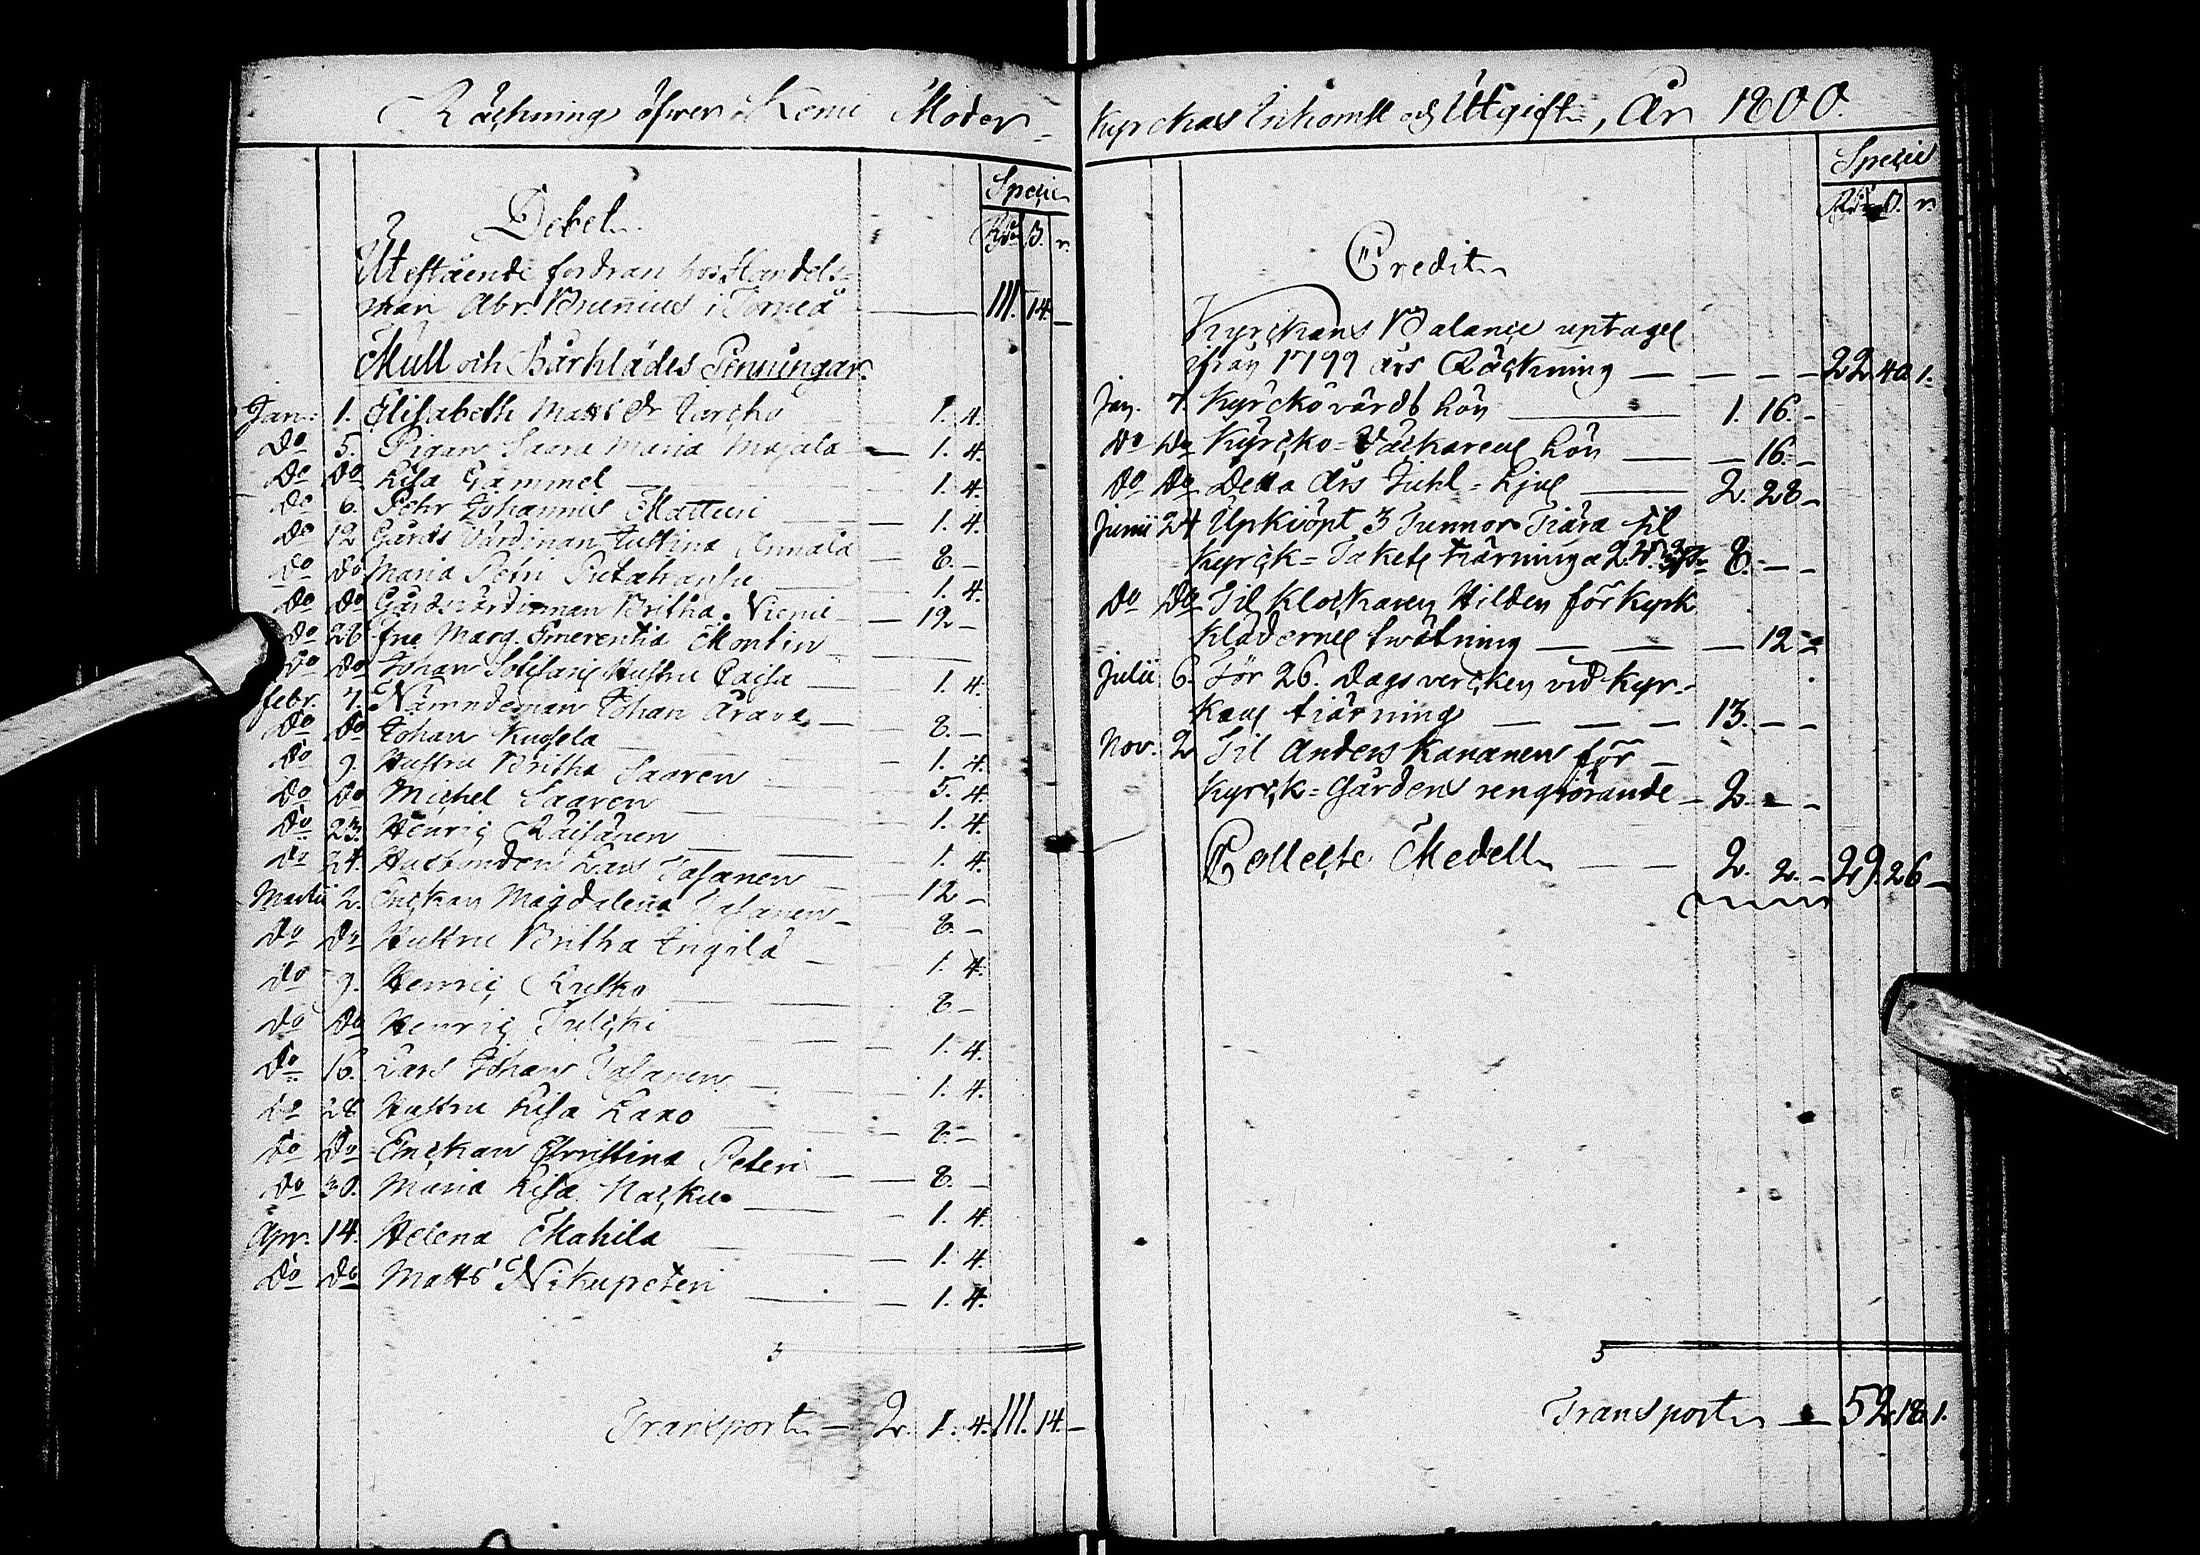 Räckning öfwer Kemi Moder-
Debet
Specie
Rdr ß. r.
Utestående fordran hos Handels-
man Abr. Brunius i Torneå — 111. 14. —
Mull och Bårklädes Penningar.
Jan: 1. Elisabeth Matts dr — 1. 4.
Do 5. Pigan Saara Maria Majala — 1. 4.
Do Do Lisa Gammel — 1. 4.
Do 6. Pehr Johannis Matturi — 1. 4.
Do 12 Gårds Värdinnan Justina Annala — 8. —
Do Do Maria Petri — 1. 4.
Do Do Gårdsvärdinnan Britha Niemi — 12 —
Do 26 fru Marg. Emerentia Montin —
Do Do Johan hustru Caisa — 1. 4.
Febr. 7. Nämndeman Johan Arava — 8. —
Do Do Johan Kusela — 1. 4.
Do 9. Hustru Britha Saaren — 5. 4.
Do Do Michel Saaren — 1. 4.
Do 23. Henric Räisänen — 1. 4.
Do 24. Husbonden Lars Tasanen — 12 —
Martii 2. Enckan Magdalena Tasanen — 8. —
Do Do Hustru Britha Jngilä — 1. 4.
Do 9. Henric Ruska — 8 —
Do Do Henric — 1. 4.
Do 16. Lars Johan Tasanen — 1. 4.
Do 28. Hustru Lisa — 8. —
Do Do Enckan Christina Peteri — 8. —
Do 30. Maria Lisa — 1. 4.
Apr. 14. Helena Mahila — 1. 4.
Do Do Matts Nikupeteri — 1. 4.
Transport — 2. 1. 4. 111. 14. —
Kyrckas Inkomst och Utgift, År 1800.
Specie
Rdr ß. r.
Credit
Kyrckans Balance uptages
ifrån 1799 års Räckning — — — — 22. 40. 1.
Jan. 7. Kyrckovärds lön — 1. 16. —
Do Do Kyrcko-Väckarens lön — — 16. —
Do Do Detta års Juhl-Ljus — 2. 28 —
Junii 24 Upkiöpt 3 Tunnor Tiära til
Kyrck-Takets tiärning — 8. — —
Do Do Til Klockaren Hilden för Kyrk
Klädernes twätning — — — — 12 —
Julii 6. För 26. Dagsvercken vid Kyr-
kans tiärning — — — 13. — —
Nov. 2 Til Anders Kananen för —
Kyrck-Gårdens rengiörande — 2. — —
Collecte Medell — — 2. 2. — 29. 26 —
Transport — 52. 18. 1.